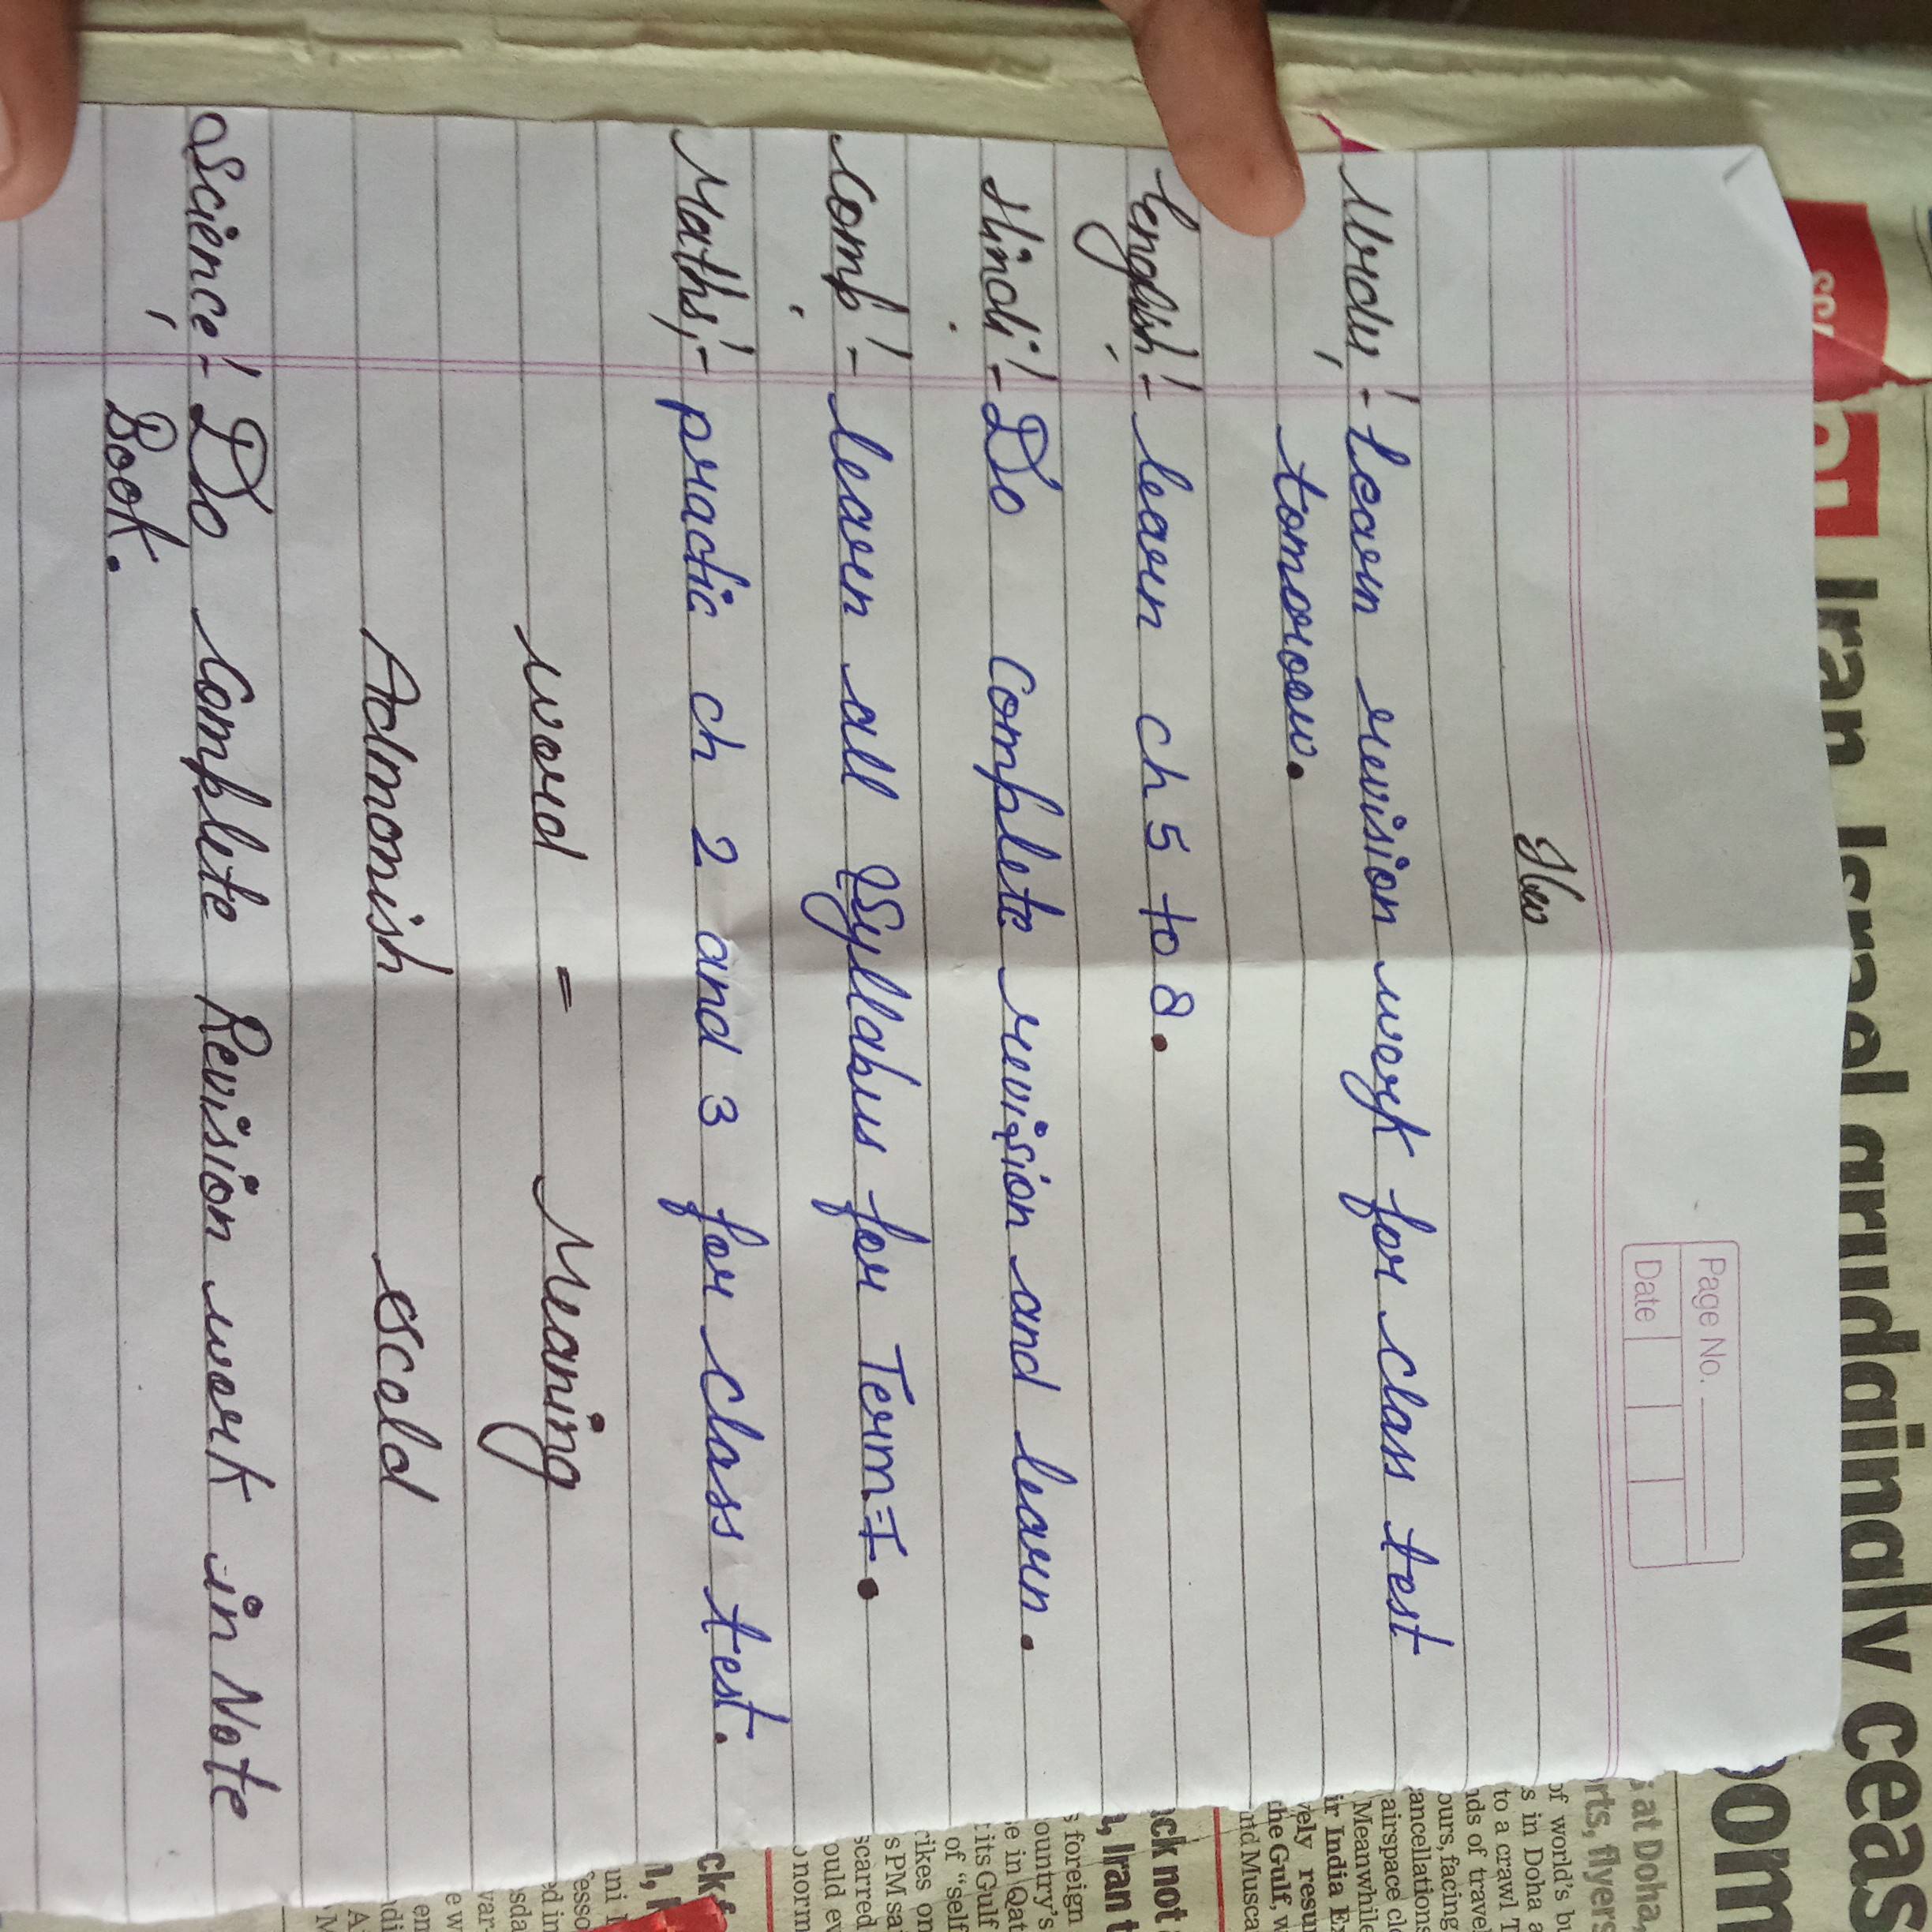 Page No.
Date
Hw
Urdu:- Learn revision work for class test
tomorow.
English:- learn ch 5 to 8.
Hindi:- Do complete revision and learn.
Comp:- learn all Syllabus for Term-I.
Maths:- practic ch 2 and 3 for class test.
word = Meaning
Admonish scold
Science:- Do Complete Revision work in Note
Book.
Iran, Israel grudgingly ceas
at Doha,
rts, flyers
of world's bu
s in Doha a
to a crawl T
nds of trave
ours, facing
ancellations
airspace cl
Meanwhile
ir India Ex
vely resu
the Gulf, w
nd Musca
ck not
, Iran t
s foreign
ountry's
e in Qat
its Gulf
of "self
rikes on
s PM sa
scarred
ould ev